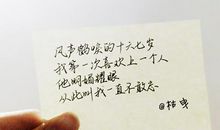 风声鹤唳的十六七岁
我第一次喜欢上一个人
他明媚耀眼
从此叫我一直不敢忘
@桔曳